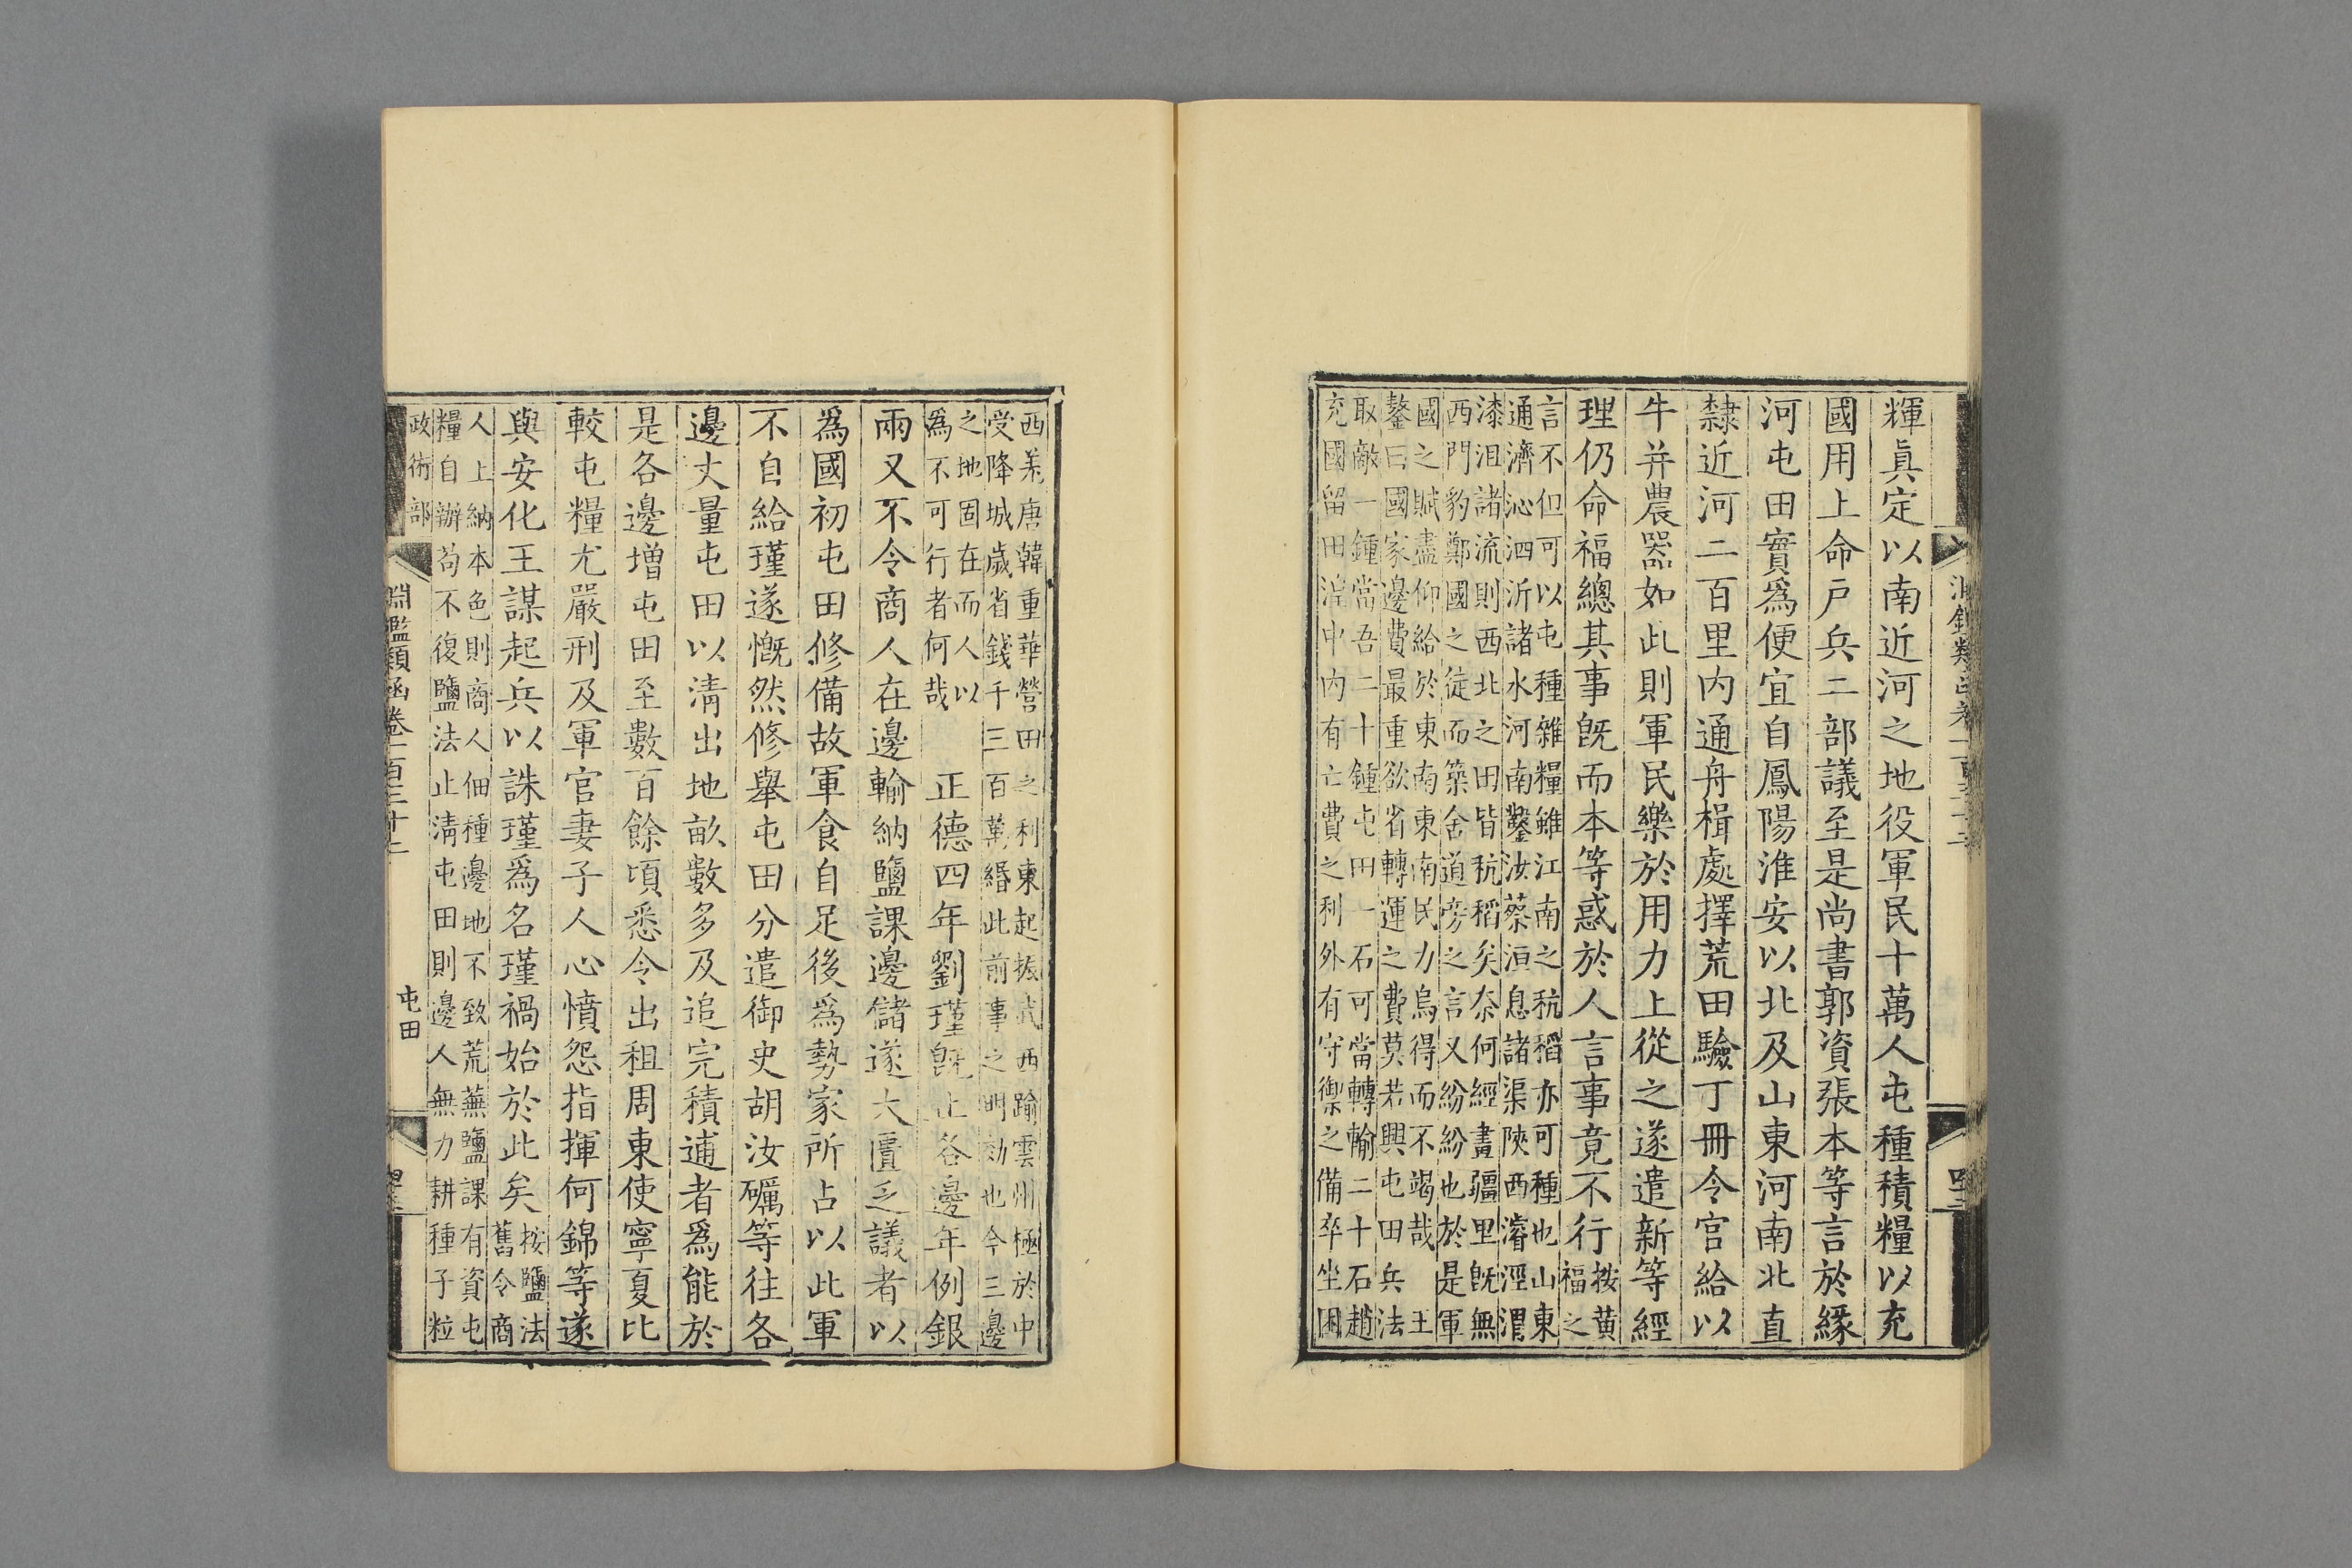 輝眞定以南近河之地役軍民十萬人屯種積糧以充
國用上命戸兵二部議至是尚書郭資張本等言於緣
河屯田實爲便宜自鳳陽淮安以北及山東河南北直
隸近河二百里内通舟楫處擇荒田驗丁冊令官給以
牛并農噐如此則軍民樂於用力上從之遂遣新等經
理仍命福總其事旣而本等惑於人言事竟不行
按黄
福之
言不但可以屯種雜糧雖江南之秔稻亦可種也山東
通濟沁泗沂諸水河南鑿汝蔡洹息諸渠陝西濬涇渭
漆沮諸流則西北之田皆秔稻矣奈何經畫疆里旣無
西門豹鄭國之徒而築舍道旁之言又紛紛也於是軍
國之賦盡仰給於東南東南民力烏得而不竭哉 王
鏊曰國家邊費最重欲省轉運之費莫若興屯田兵法
取敵一鍾當吾二十鍾屯田一石可當轉輸二十石趙
充國留田湟中内有亡費之利外有守禦之備卒坐困
西羌唐韓重華營田之利東起振武西踰雲州極於中
受降城歲省錢千三百萬緡此前事之明効也今三邊
之地固在而人以
爲不可行者何哉
正德四年劉瑾旣止各邊年例銀
兩又不令商人在邊輸納鹽課邊儲遂大匱乏議者以
爲國初屯田修備故軍食自足後爲勢家所占以此軍
不自給瑾遂慨然修舉屯田分遣御史胡汝礪等往各
邊丈量屯田以淸出地畝數多及追完積逋者爲能於
是各邊增屯田至數百餘頃悉令出租周東使寧夏比
較屯糧尤嚴刑及軍官妻子人心憤怨指揮何錦等遂
與安化王謀起兵以誅瑾爲名瑾禍始於此矣
按鹽法
舊令商
人上納本色則商人佃種邊地不致荒蕪鹽課有資屯
糧自辦苟不復鹽法止淸屯田則邊人無力耕種子粒
政術部
淵鑑類函卷一百三十二
屯田